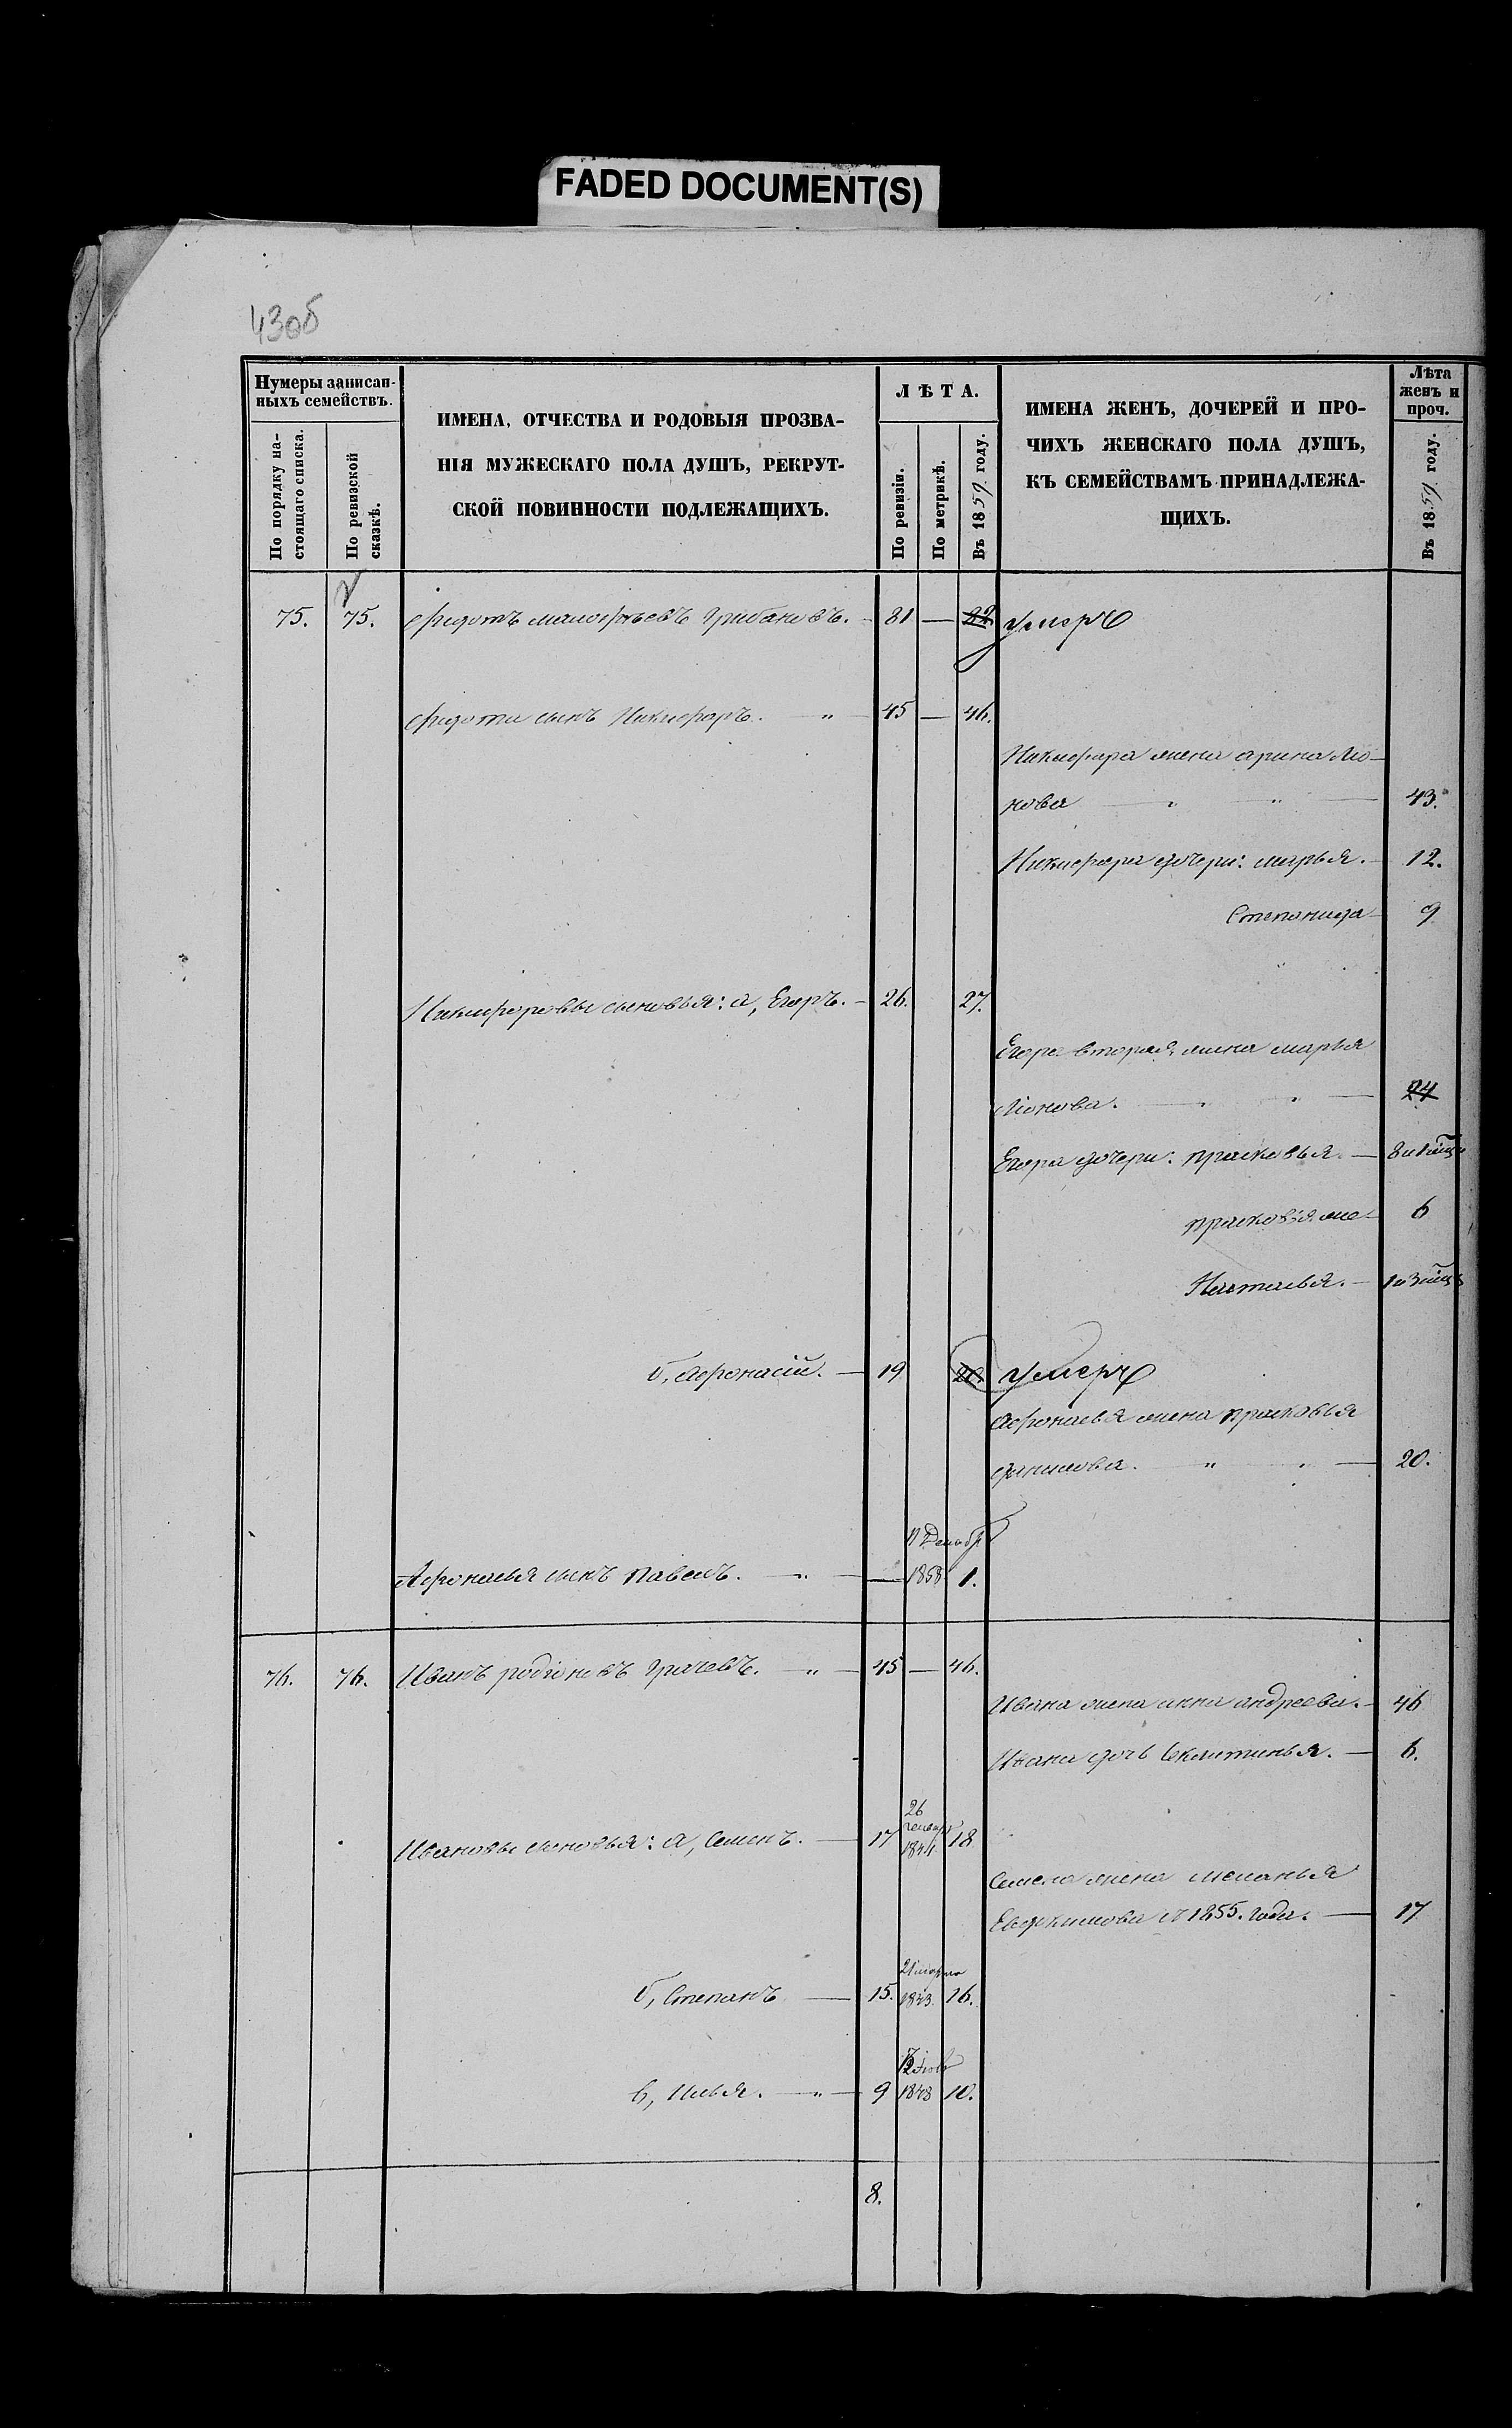 FADED DOCUMENT(S)
430б
Нумеры записан-
ныхъ семействъ.
По порядку на-
стоящаго списка.
По ревизской
сказкѣ.
ИМЕНА, ОТЧЕСТВА И РОДОВЫЯ ПРОЗВА-
НІЯ МУЖЕСКАГО ПОЛА ДУШЪ, РЕКРУТ-
СКОЙ ПОВИННОСТИ ПОДЛЕЖАЩИХЪ.
ЛѢТА.
По ревизіи.
По метрикѣ.
Въ 1859 году.
ИМЕНА ЖЕНЪ, ДОЧЕРЕЙ И ПРО-
ЧИХЪ ЖЕНСКАГО ПОЛА ДУШЪ,
КЪ СЕМЕЙСТВАМЪ ПРИНАДЛЕЖА-
ЩИХЪ.
Лѣта
женъ и
проч.
Въ 1859 году.
75. 75. Федотъ Малофѣевъ Грибановъ. 81 — 82 умеръ
Федота сынъ Никифоръ. " 45 — 46.
Никифора жена арина Ліо-
нова " " 43.
Никифора дочери: марья. 12.
Степонида 9
Никифоровы сыновья: а, Егоръ. 26. 27.
Егора вторая жена марья
Ліонова. " " 24
Егора дочери: прасковья 8 и 1 мѣц
прасковья же 6
Настасья. 1 и 3 мѣц
б, Афонасій. 19 20. умеръ
Афонасья жена прасковья
20.
Декабр
Афонасья сынъ павелъ. " — 1858 1.
76. 76. Иванъ родіоновъ Грачевъ. " 45 — 46.
Ивана жена анна андреева. 46
Ивана дочь Секлитинья. 6.
26
генвар
Ивановы сыновья: а, Семенъ. 17 1841 18
Семена жена меланья
Евдокимова съ 1855. года. 17
21 марта
б, Степанъ 15. 1843 16.
в, Илья. " 9 1848 10.
8.